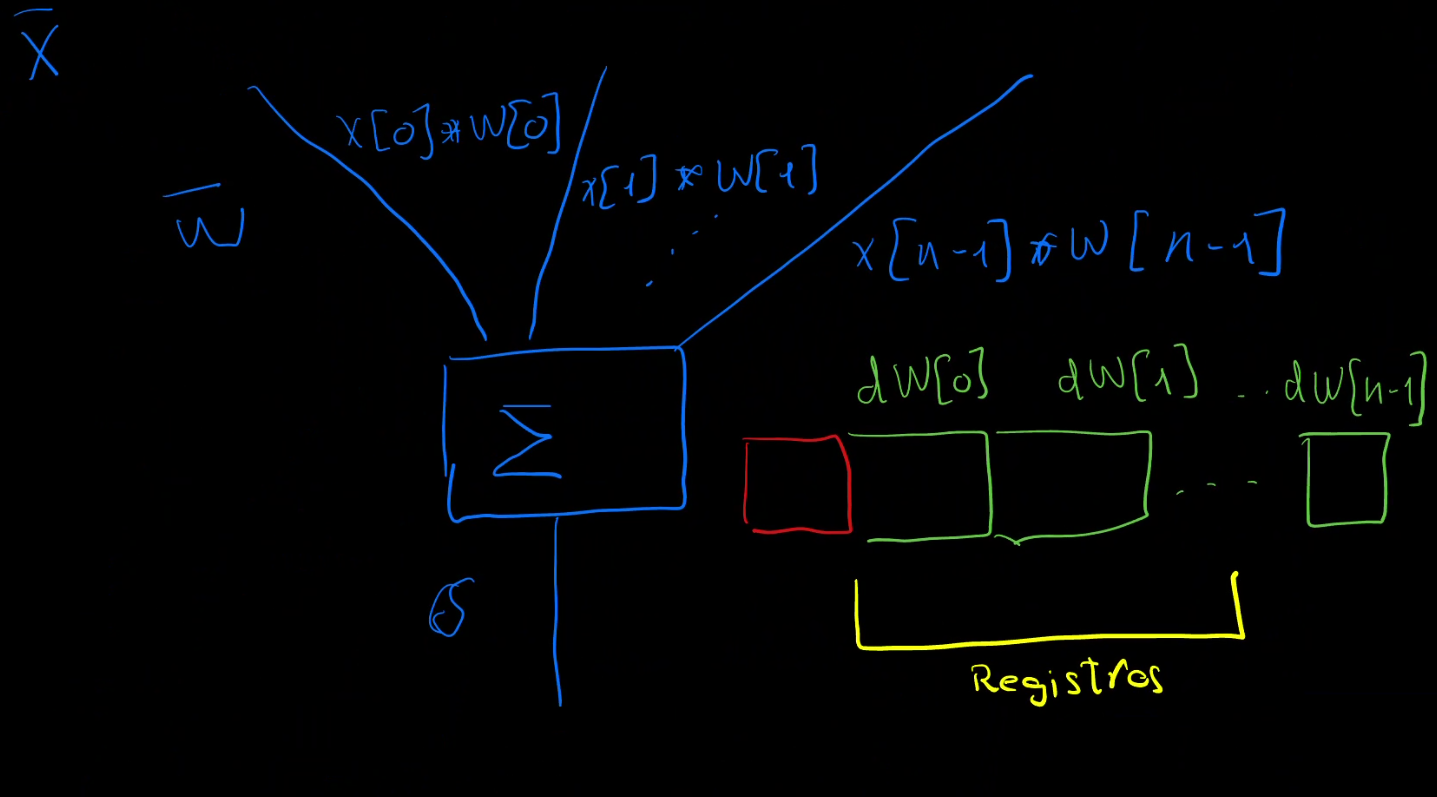 X̅
x[0]*W[0]
x[1]*W[1]
W̅
x[n-1]*W[n-1]
dW[0] dW[1] ... dW[n-1]
Σ
Registros